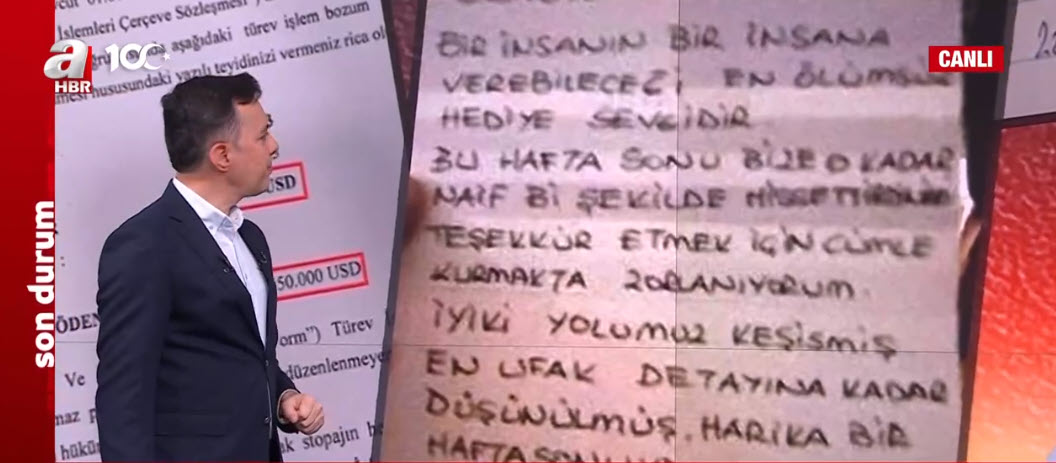 İşlemleri Çerçeve Sözleşmesi
aşağıdaki türev işlem bozum
hususundaki yazılı teyidinizi vermeniz rica
a
HBR
100
CANLI
son durum
USD
50.000 USD
Türev
düzenlenmeye
Ve
stopajın
BİR İNSANIN BİR İNSANA
VEREBİLECEĞİ EN
HEDİYE SEVGİDİR
BU HAFTA SONU BİZE O KADAR
NAİF Bİ ŞEKİLDE
TEŞEKKÜR ETMEK İÇİN CÜMLE
KURMAKTA ZORLANIYORUM.
İYİKİ YOLUMUZ KESİŞMİŞ
EN UFAK DETAYINA KADAR
DÜŞÜNÜLMÜŞ. HARİKA BİR